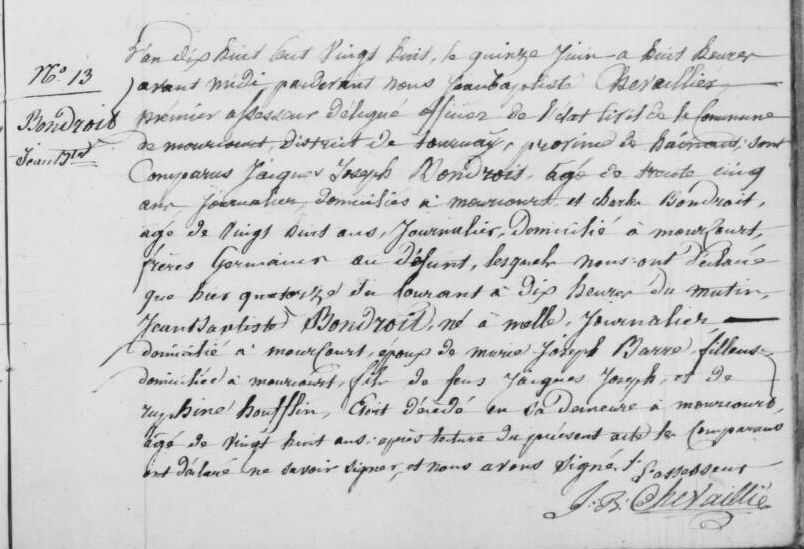 N.º 13
Bondroit
Jean Bte
L'an dix huit cent vingt huit, le quinze juin a huit heures
avant midi pardevant nous Jean Baptiste Chevaillier,
premier assesseur délégué officier de l'état civil de la Commune
de mourcourt, district de tournay, province de hainaut, sont
Comparus Jacques Joseph Bondroit, âgé de trente cinq
ans journalier, domiciliés à mourcourt, et charles Bondroit,
âgé de vingt huit ans, Journalier, domicilié à mourcourt,
frères Germains au défunt, lesquels nous ont déclaré
que hier quatorze du courant à dix heures du matin,
Jean Baptiste Bondroit, né à melle, Journalier
domicilié à mourcourt, époux de marie Joseph Barre, fileuse
domiciliée à mourcourt, fils de feus Jacques Joseph, et de
ruphine houfflin, Etoit décédé en sa demeure à mourcourt,
âgé de vingt huit ans; après lecture du présent acte les Comparans
ont déclaré ne savoir signer, et nous avons signé.
L'assesseur
J: B: Chevaillié